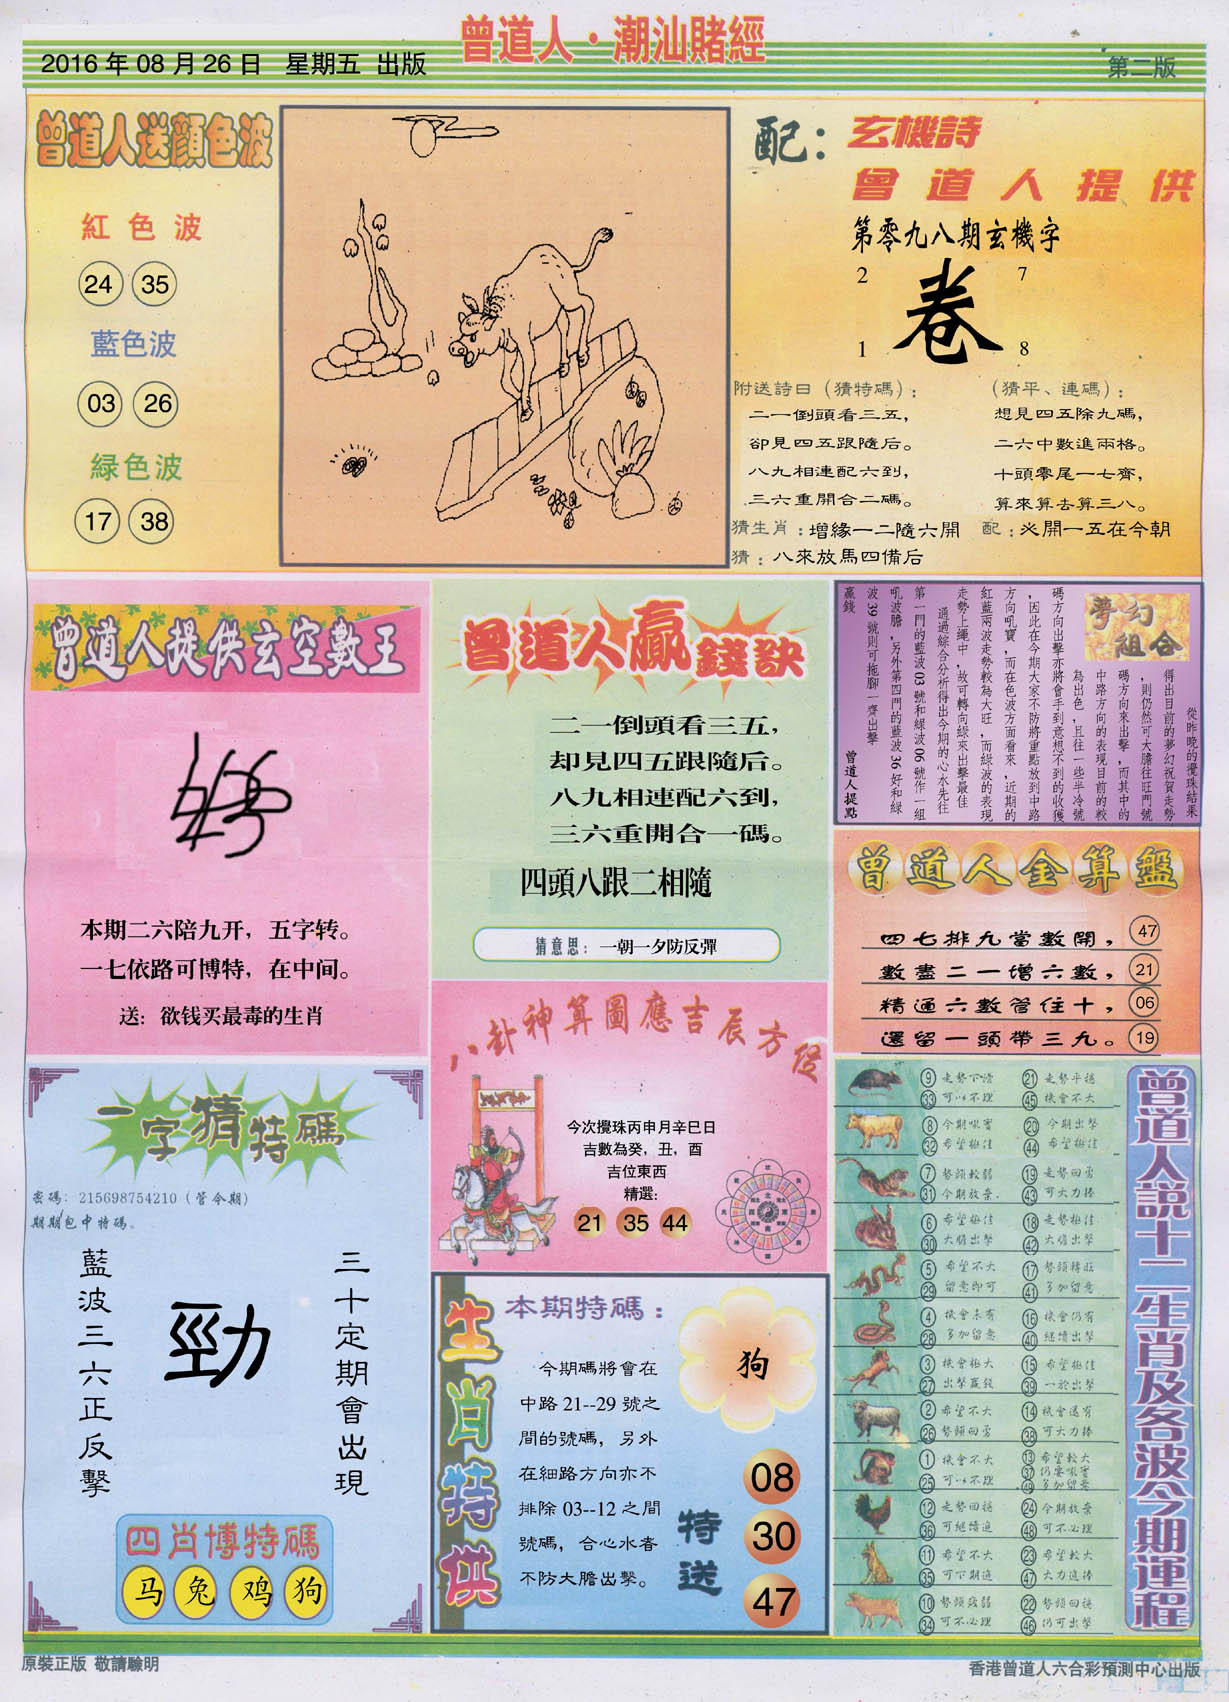 曾道人·潮汕賭經
2016年08月26日 星期五 出版
第二版
曾道人送顏色波
紅色波
24 35
藍色波
03 26
綠色波
17 38
配：
玄機詩
曾道人提供
第零九八期玄機字
2 7
卷
1 8
附送詩曰（猜特碼）：
二一倒頭看三五，
卻見四五跟隨后。
八九相連配六到，
三六重開合二碼。
（猜平、連碼）：
想見四五除九碼，
二六中數進兩格。
十頭零尾一七齊，
算來算去算三八。
猜生肖：增緣一二隨六開
配：必開一五在今朝
猜：八來放馬四備后
曾道人提供玄空數王
本期二六陪九开，五字转。
一七依路可博特，在中间。
送：欲钱买最毒的生肖
曾道人贏錢訣
二一倒頭看三五，
却見四五跟隨后。
八九相連配六到，
三六重開合一碼。
四頭八跟二相隨
猜意思：一朝一夕防反彈
夢幻組合
從昨晚的攪珠結果
得出目前的夢幻祝賀走勢
，則仍然可大膽往旺門號
碼方向來出擊，而其中的
中路方向的表現目前的較
為出色，且往一些半冷號
碼方向出擊亦將會手到意想不到的收獲
，因此在今期大家不防將重點放到中路
方向吼寶，而在色波方面看來，近期的
紅藍兩波走勢較為大旺，而綠波的表現
走勢上繩中，故可轉向綠來出擊最佳
通過綜合分析得出今期的心水先往
第一門的藍波03號和綠波06號作一組
吼波膽，另外第四門的藍波36好和綠
波39號則可拖腳一齊出擊
贏錢
曾道人提點
曾道人金算盤
四七排九當數開， 47
數盡二一增六數， 21
精通六數管住十， 06
還留一頭帶三九。 19
八卦神算圖應吉辰方位
今次攪珠丙申月辛巳日
吉數為癸，丑，酉
吉位東西
精選：
21 35 44
一字猜特碼
密碼：215698754210（管令期）
期期包中特碼。
三十定期會出現
勁
藍波三六正反擊
四肖博特碼
马 兔 鸡 狗
生肖特供
本期特碼：
狗
今期碼將會在
中路21--29號之
間的號碼，另外
在細路方向亦不
排除03--12之間
號碼，合心水者
不防大膽出擊。
特送
08
30
47
曾道人説十二生肖及各波今期運程
9 走勢下滑 21 走勢平穩
33 可以不理 45 機會不大
8 今期吼寶 20 今期出擊
32 希望極佳 44 希望極佳
7 勢頭較弱 19 走勢回勇
31 今期放棄 43 可大力捧
6 希望極佳 18 走勢極佳
30 大膽出擊 42 大膽出擊
5 希望不大 17 勢頭轉旺
29 留意即可 41 多加留意
4 機會未有 16 機會仍有
28 多加留意 40 繼續出擊
3 機會極大 15 希望極佳
27 出擊贏錢 39 一於出擊
2 希望不大 14 機會還有
26 勢頭回勇 38 可大力捧
1 機會不大 13 希望較大
25 可以不理 37 仍要吼寶
49 多加留意
12 走勢回穩 24 今期放棄
36 可繼續追 48 可不必理
11 希望不大 23 希望較大
35 可下期追 47 大力追捧
10 勢頭疲弱 22 勢頭回穩
34 可不必理 46 仍可出擊
原裝正版 敬請驗明
香港曾道人六合彩預測中心出版